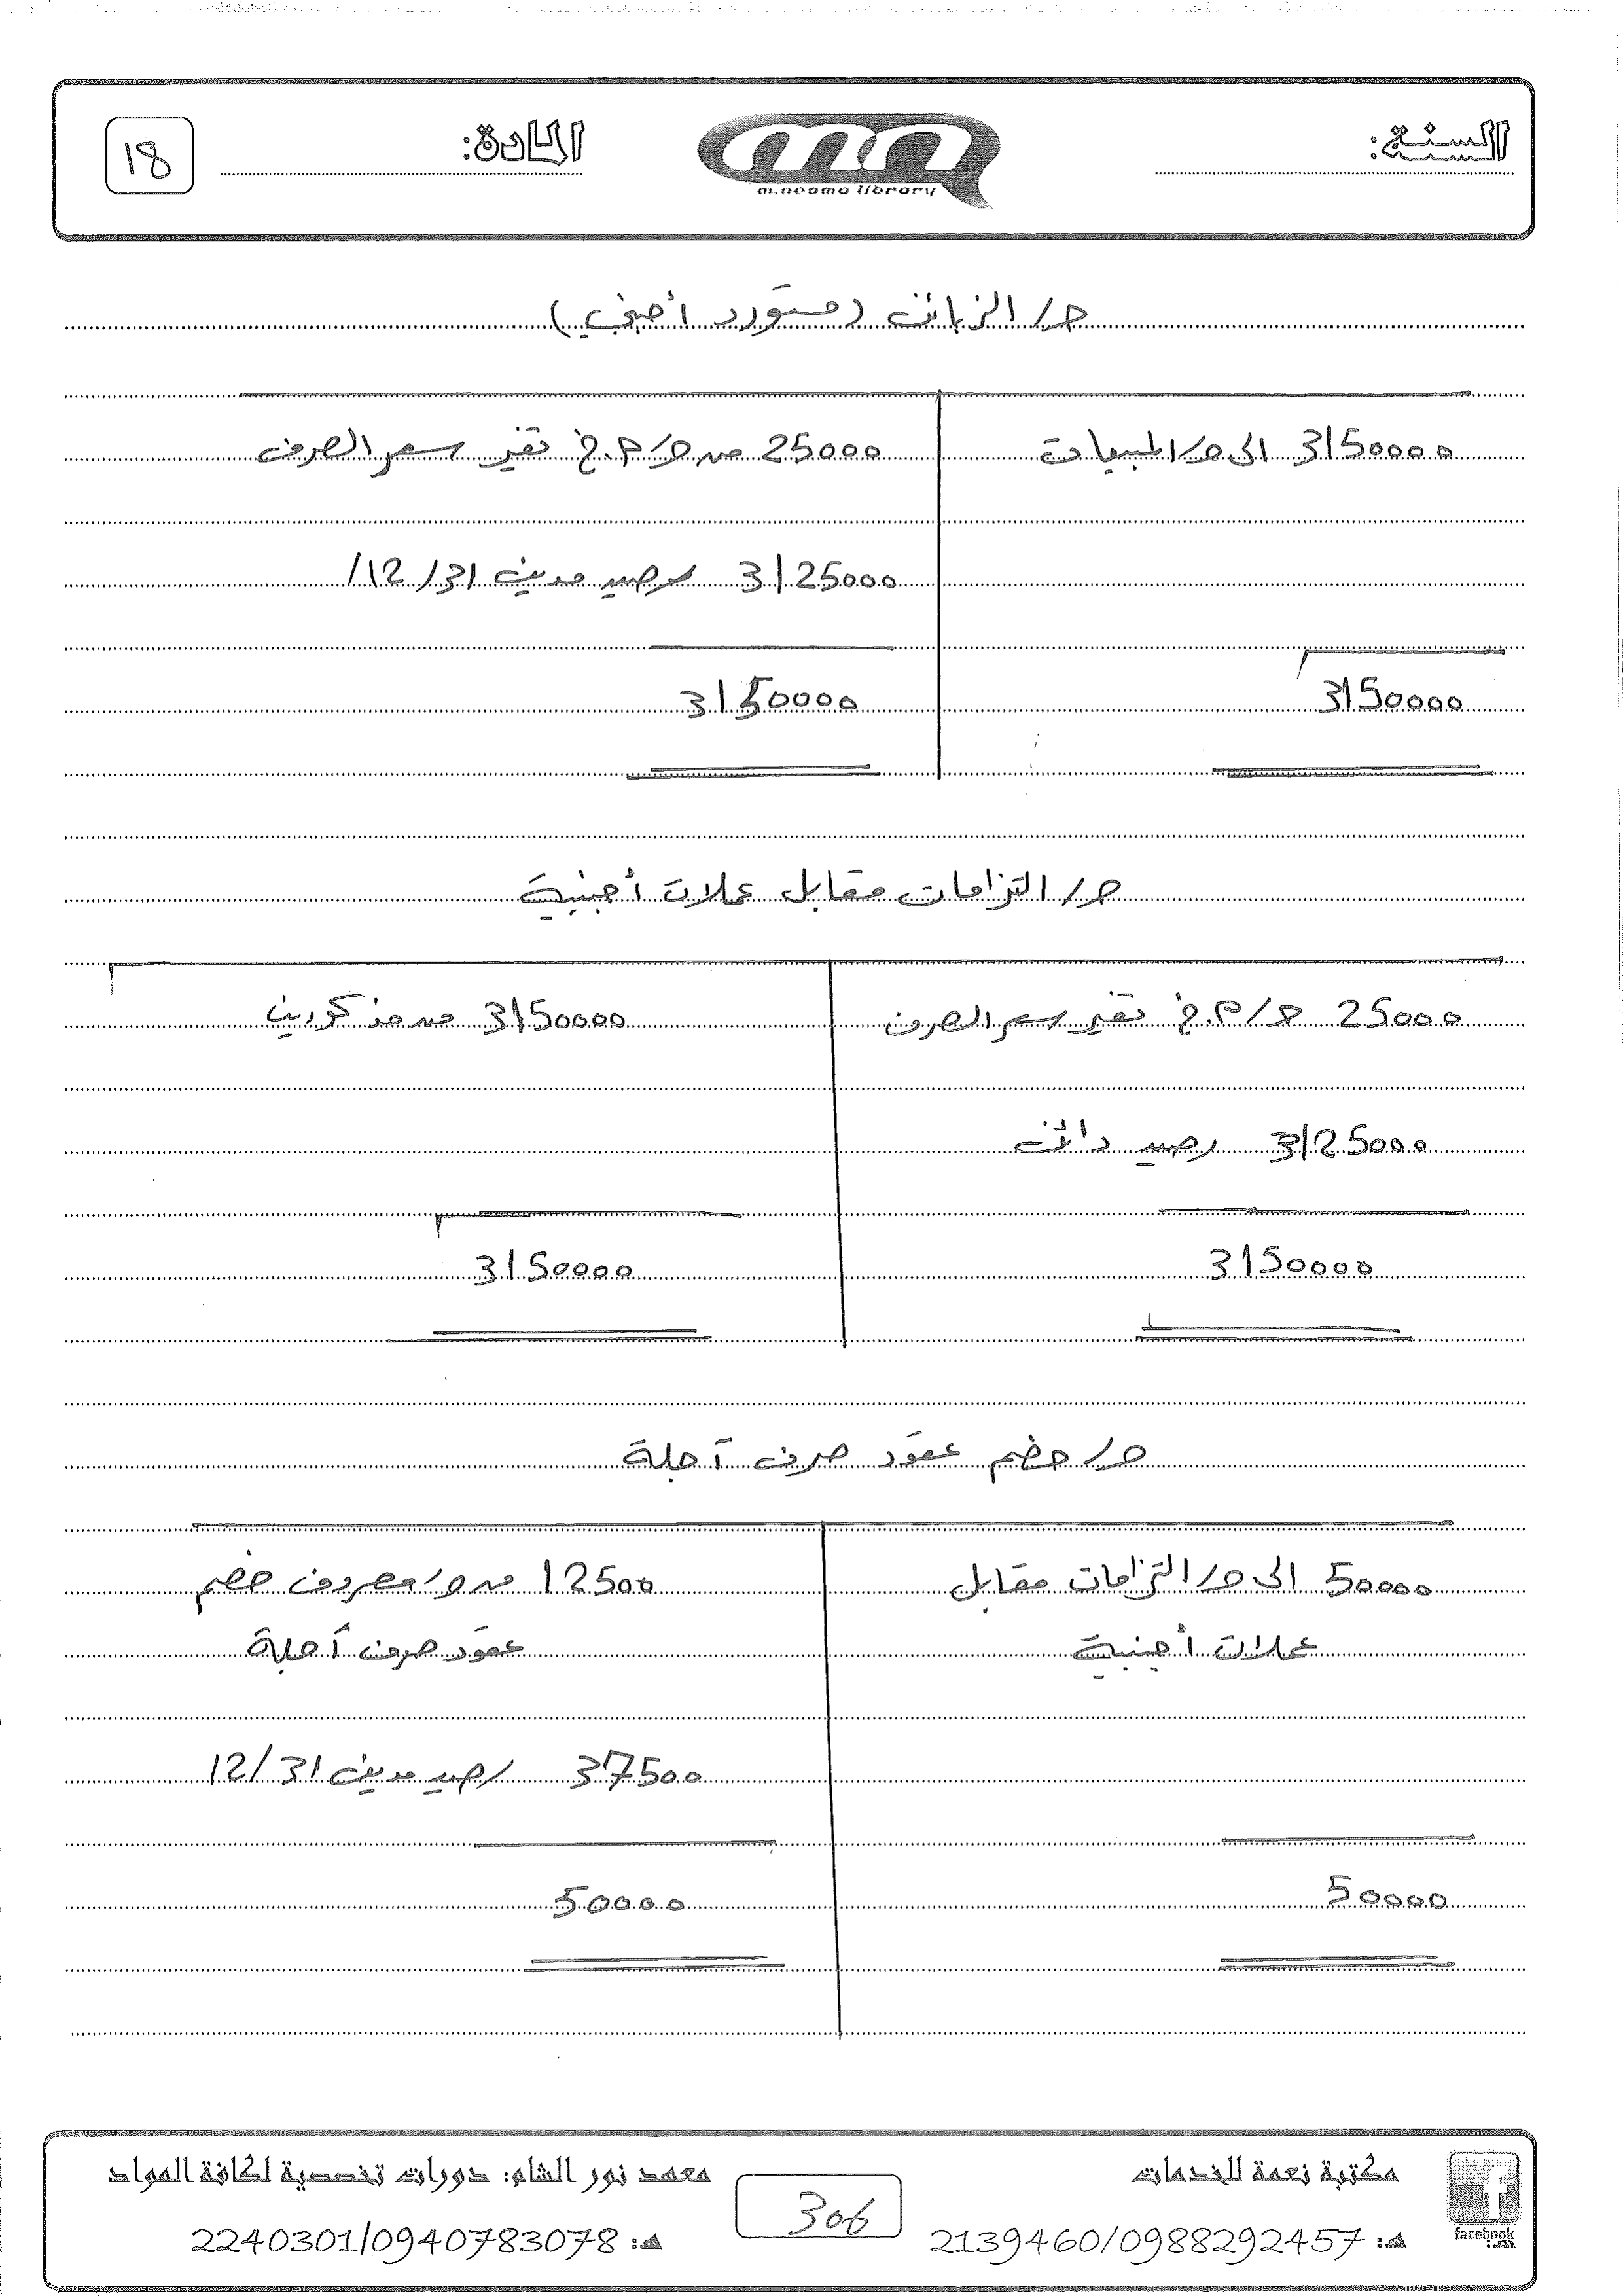 السنة:
m.neama library
المادة:
18
ح/ الزبائن (مستورد أجنبي)
3150000 الى ح/ المبيعات
25000 من ح/ م.خ تغير سعر الصرف
3125000 رصيد مدين 31/12/
3150000
3150000
ح/ التزامات مقابل عملات أجنبية
25000 ح/ م.خ تغير سعر الصرف
3150000 من مذكورين
3125000 رصيد دائن
3150000
3150000
ح/ خصم عقود صرف آجلة
50000 الى ح/ التزامات مقابل
عملات أجنبية
12500 من ح/ مصروف خصم
عقود صرف آجلة
37500 رصيد مدين 31/12
50000
50000
facebook
مكتبة نعمة للخدمات
هـ: 2139460/0988292457
306
معهد نور الشام: دورات تخصصية لكافة المواد
هـ: 2240301/0940783078